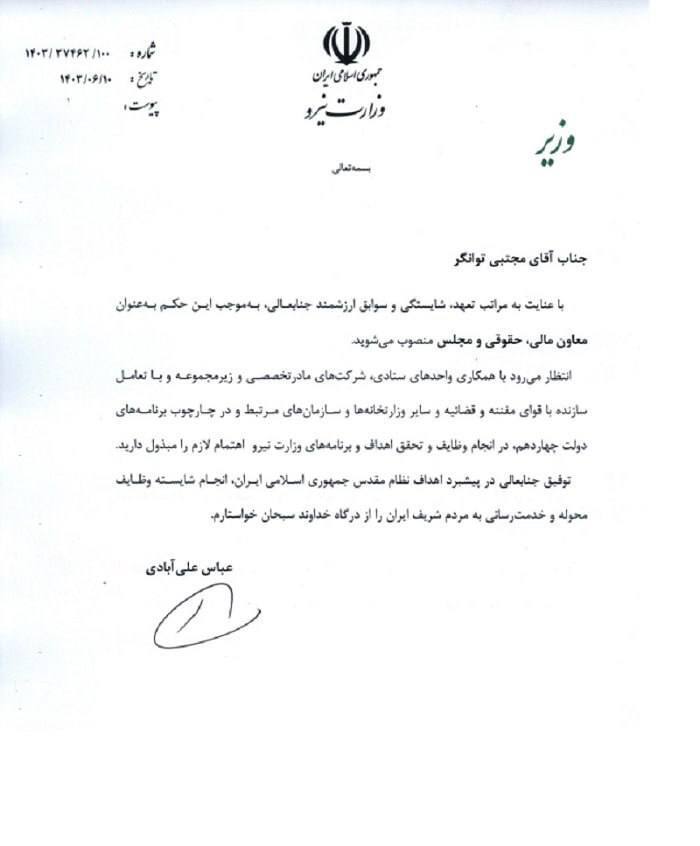 جمهوری اسلامی ایران
وزارت نیرو
شماره: ۱۴۰۳/۳۷۴۶۲/۱۰۰
تاریخ: ۱۴۰۳/۰۶/۱۰
پیوست:
وزیر
بسمه‌تعالی
جناب آقای مجتبی توانگر
با عنایت به مراتب تعهد، شایستگی و سوابق ارزشمند جنابعالی، به‌موجب این حکم به‌عنوان
معاون مالی، حقوقی و مجلس منصوب می‌شوید.
انتظار می‌رود با همکاری واحدهای ستادی، شرکت‌های مادرتخصصی و زیرمجموعه و با تعامل
سازنده با قوای مقننه و قضائیه و سایر وزارتخانه‌ها و سازمان‌های مرتبط و در چارچوب برنامه‌های
دولت چهاردهم، در انجام وظایف و تحقق اهداف و برنامه‌های وزارت نیرو اهتمام لازم را مبذول دارید.
توفیق جنابعالی در پیشبرد اهداف نظام مقدس جمهوری اسلامی ایران، انجام شایسته وظایف
محوله و خدمت‌رسانی به مردم شریف ایران را از درگاه خداوند سبحان خواستارم.
عباس علی‌آبادی